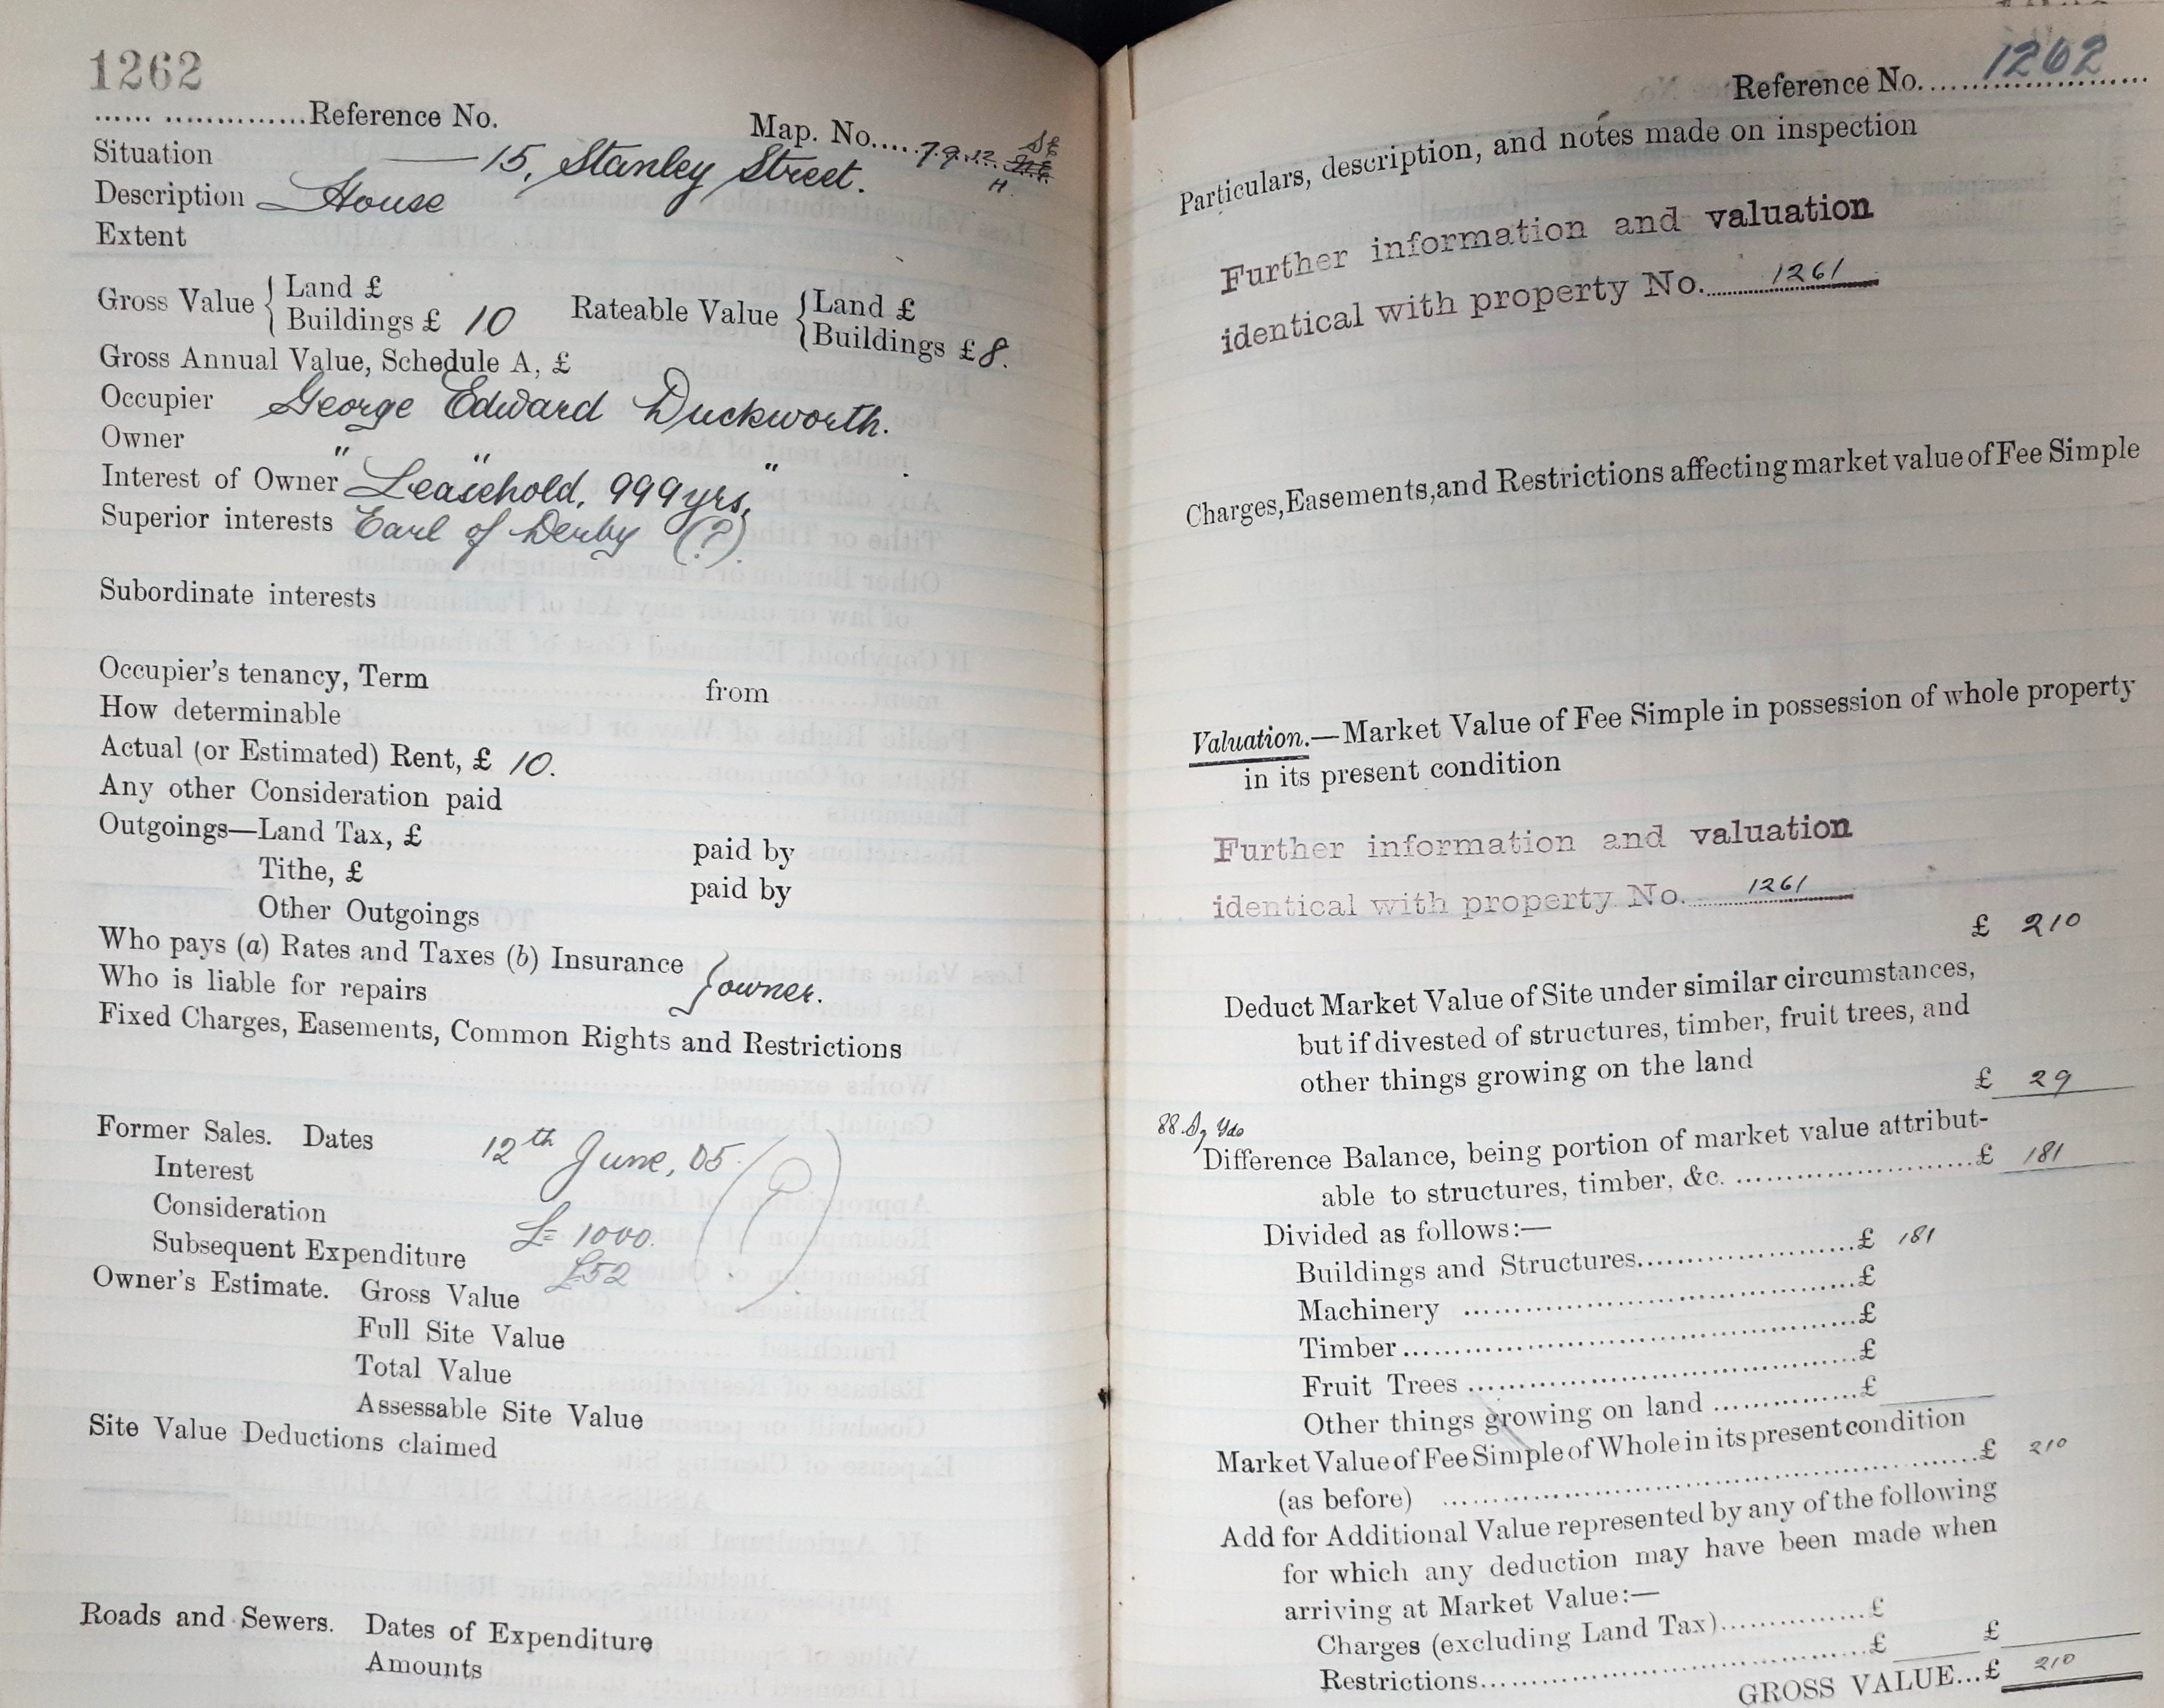 1262
...... ..............Reference No.
Map. No.....7.9.12. S.E.
H.
Situation ——15, Stanley Street.
Description House
Extent
Gross Value { Land £
Buildings £ 10
Rateable Value { Land £
Buildings £ 8.
Gross Annual Value, Schedule A, £
Occupier George Edward Duckworth.
Owner " " "
Interest of Owner Leasehold, 999 yrs,
Superior interests Earl of Derby (?).
Subordinate interests
Occupier's tenancy, Term from
How determinable
Actual (or Estimated) Rent, £ 10.
Any other Consideration paid
Outgoings—Land Tax, £ paid by
Tithe, £ paid by
Other Outgoings
Who pays (a) Rates and Taxes (b) Insurance
Who is liable for repairs } owner.
Fixed Charges, Easements, Common Rights and Restrictions
Former Sales. Dates 12th June, 05. (?)
Interest
Consideration £= 1000.
Subsequent Expenditure £52
Owner's Estimate. Gross Value
Full Site Value
Total Value
Assessable Site Value
Site Value Deductions claimed
Roads and Sewers. Dates of Expenditure
Amounts
Reference No. 1262
Particulars, description, and notes made on inspection
Further information and valuation
identical with property No. 1261
Charges, Easements, and Restrictions affecting market value of Fee Simple
Valuation.—Market Value of Fee Simple in possession of whole property
in its present condition
Further information and valuation
identical with property No. 1261
£ 210
Deduct Market Value of Site under similar circumstances,
but if divested of structures, timber, fruit trees, and
other things growing on the land
£ 29
88. Sq Yds
Difference Balance, being portion of market value attribut-
able to structures, timber, &c. ........................£ 181
Divided as follows:—
Buildings and Structures........................£ 181
Machinery ........................£
Timber........................£
Fruit Trees ........................£
Other things growing on land ...............£
Market Value of Fee Simple of Whole in its present condition
(as before) ........................£ 210
Add for Additional Value represented by any of the following
for which any deduction may have been made when
arriving at Market Value:—
Charges (excluding Land Tax)...............£
Restrictions........................£ £
GROSS VALUE...£ 210